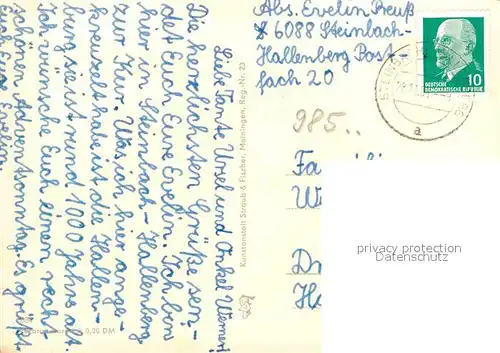 Abs. Evelin Preuß
* 6088 Steinbach-
Hallenberg Post-
fach 20
DEUTSCHE
DEMOKRATISCHE REPUBLIK
10
a
985..
Liebe Tante Ursel und Onkel Werner!
Die herzlichsten Grüße sen-
det Euch Eure Evelin. Ich bin
hier in Steinbach-Hallenberg
zur Kur. Was ich hier ange-
kreuzelt habe ist die Hallen-
burg sie ist rund 1000 Jahre alt.
Ich wünsche Euch einen recht
schönen Adventsonntag. Es grüßt
Euch Eure Evelin.
Kunstanstalt Straub & Fischer, Meiningen, Reg.-Nr. 23
0,20 DM
Fa
W
Dr
Ha
privacy protection
Datenschutz